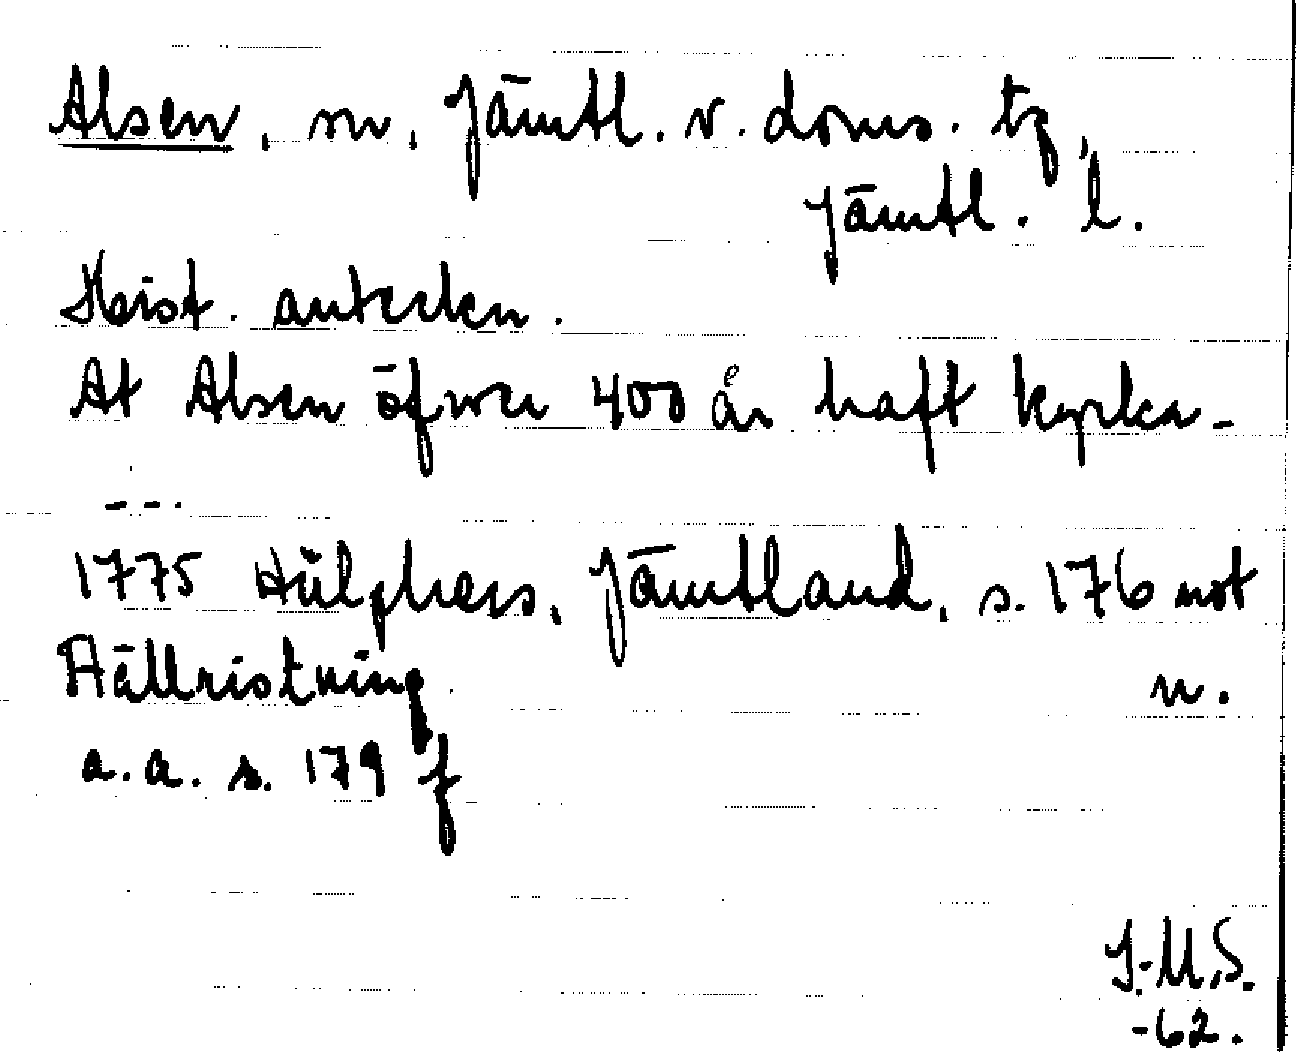 Alsen, sn, Jämtl. v. doms. tg,
Jämtl. l.
Hist. anteckn.
At Alsen öfwer 400 år haft kyrka -
---.
1775 Hülphers, Jämtland, s. 176 not
n.
Hällristning
a.a. s. 179 f
J.M.S.
-62.